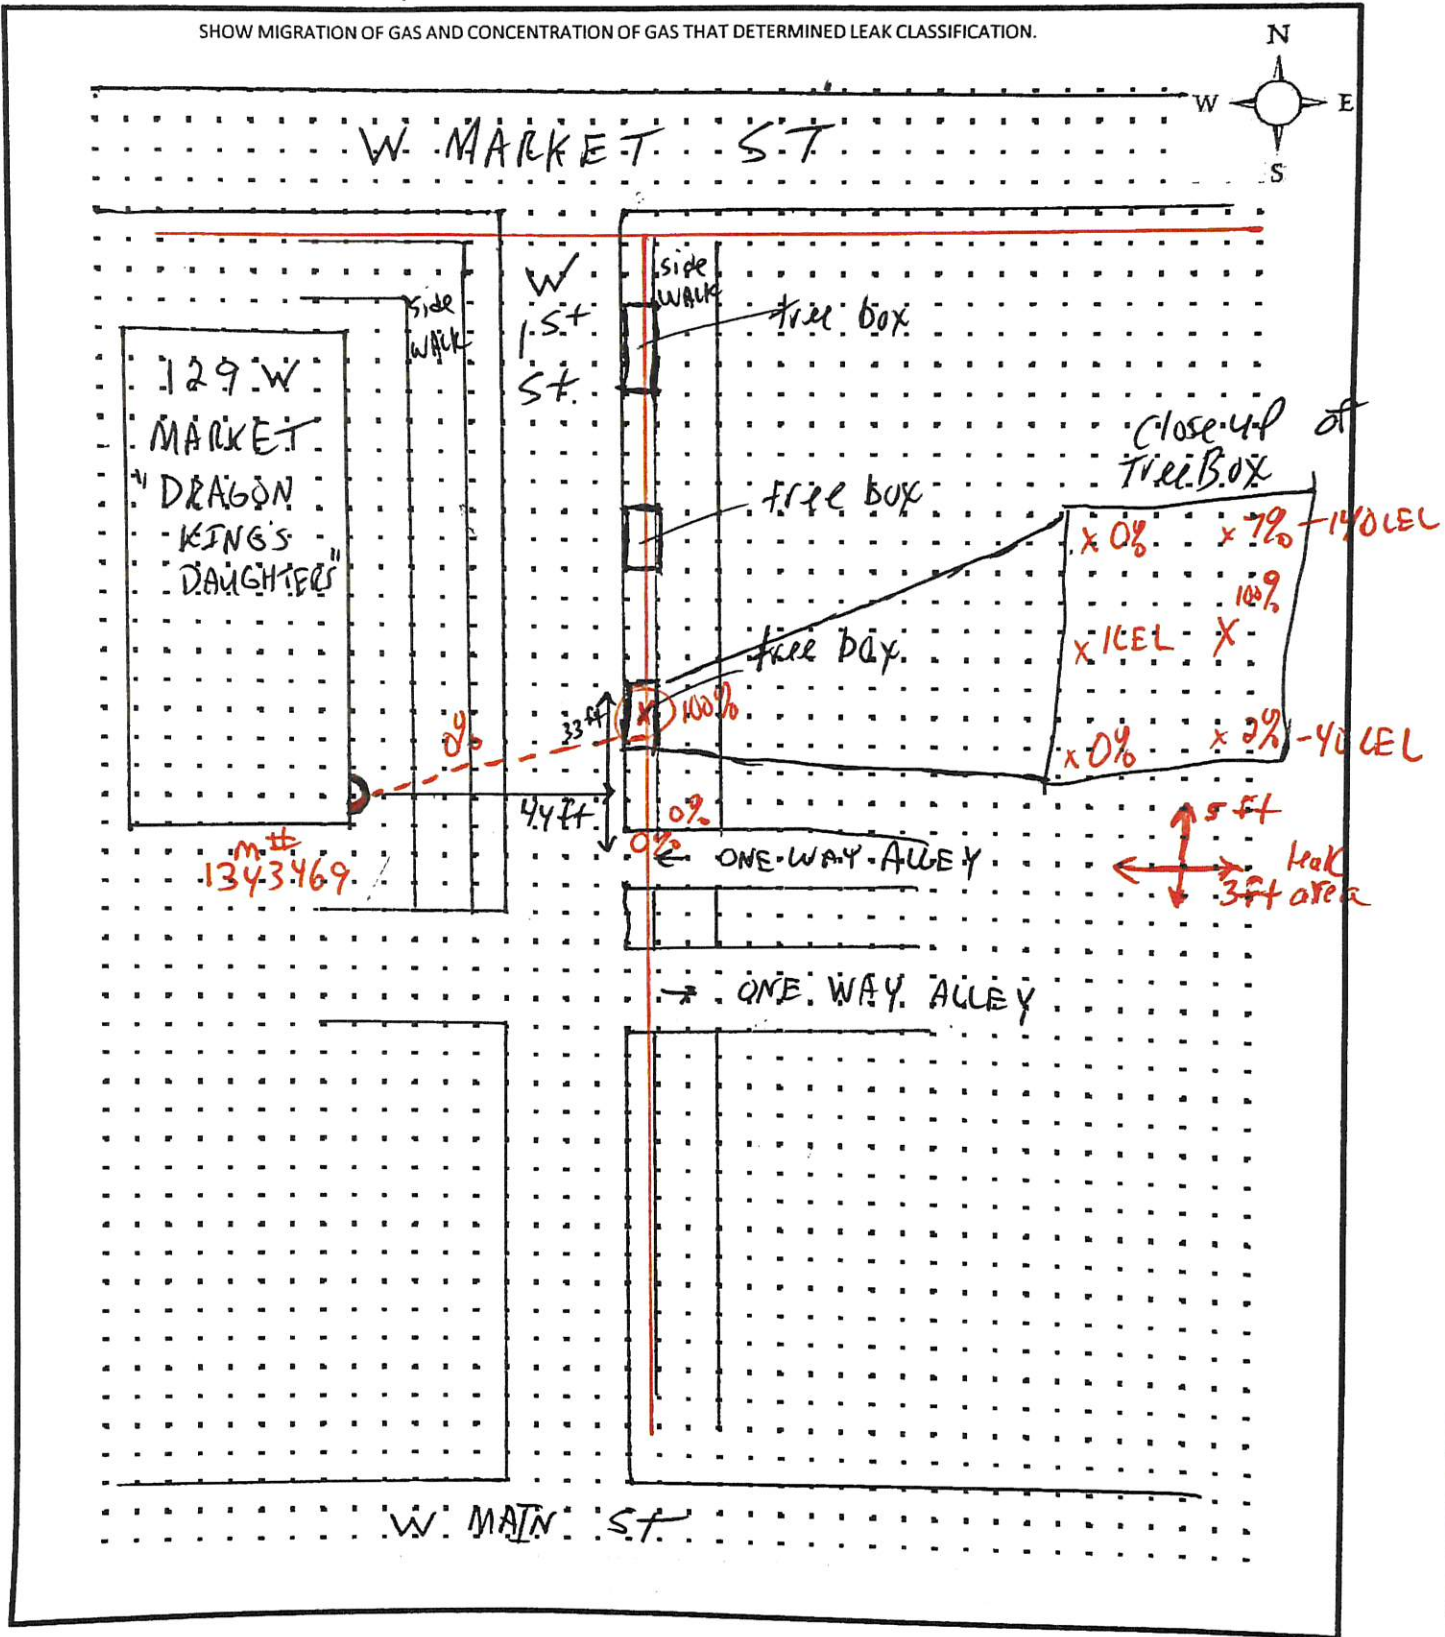 SHOW MIGRATION OF GAS AND CONCENTRATION OF GAS THAT DETERMINED LEAK CLASSIFICATION.
N
W E
S
W MARKET ST
side
WALK
W
1st
St.
side
WALK
tree box
129 W
MARKET
"DRAGON
KING'S
DAUGHTERS"
tree box
Close up of
Tree Box
x 0% x 7% - 140 LEL
100%
x 1 LEL X
x 0% x 2% - 40 LEL
tree box
x 100%
33 ft
0%
44 ft
0%
0%
← ONE WAY ALLEY
m #
1343469
5 ft
leak
3ft area
→ ONE WAY ALLEY
W MAIN St